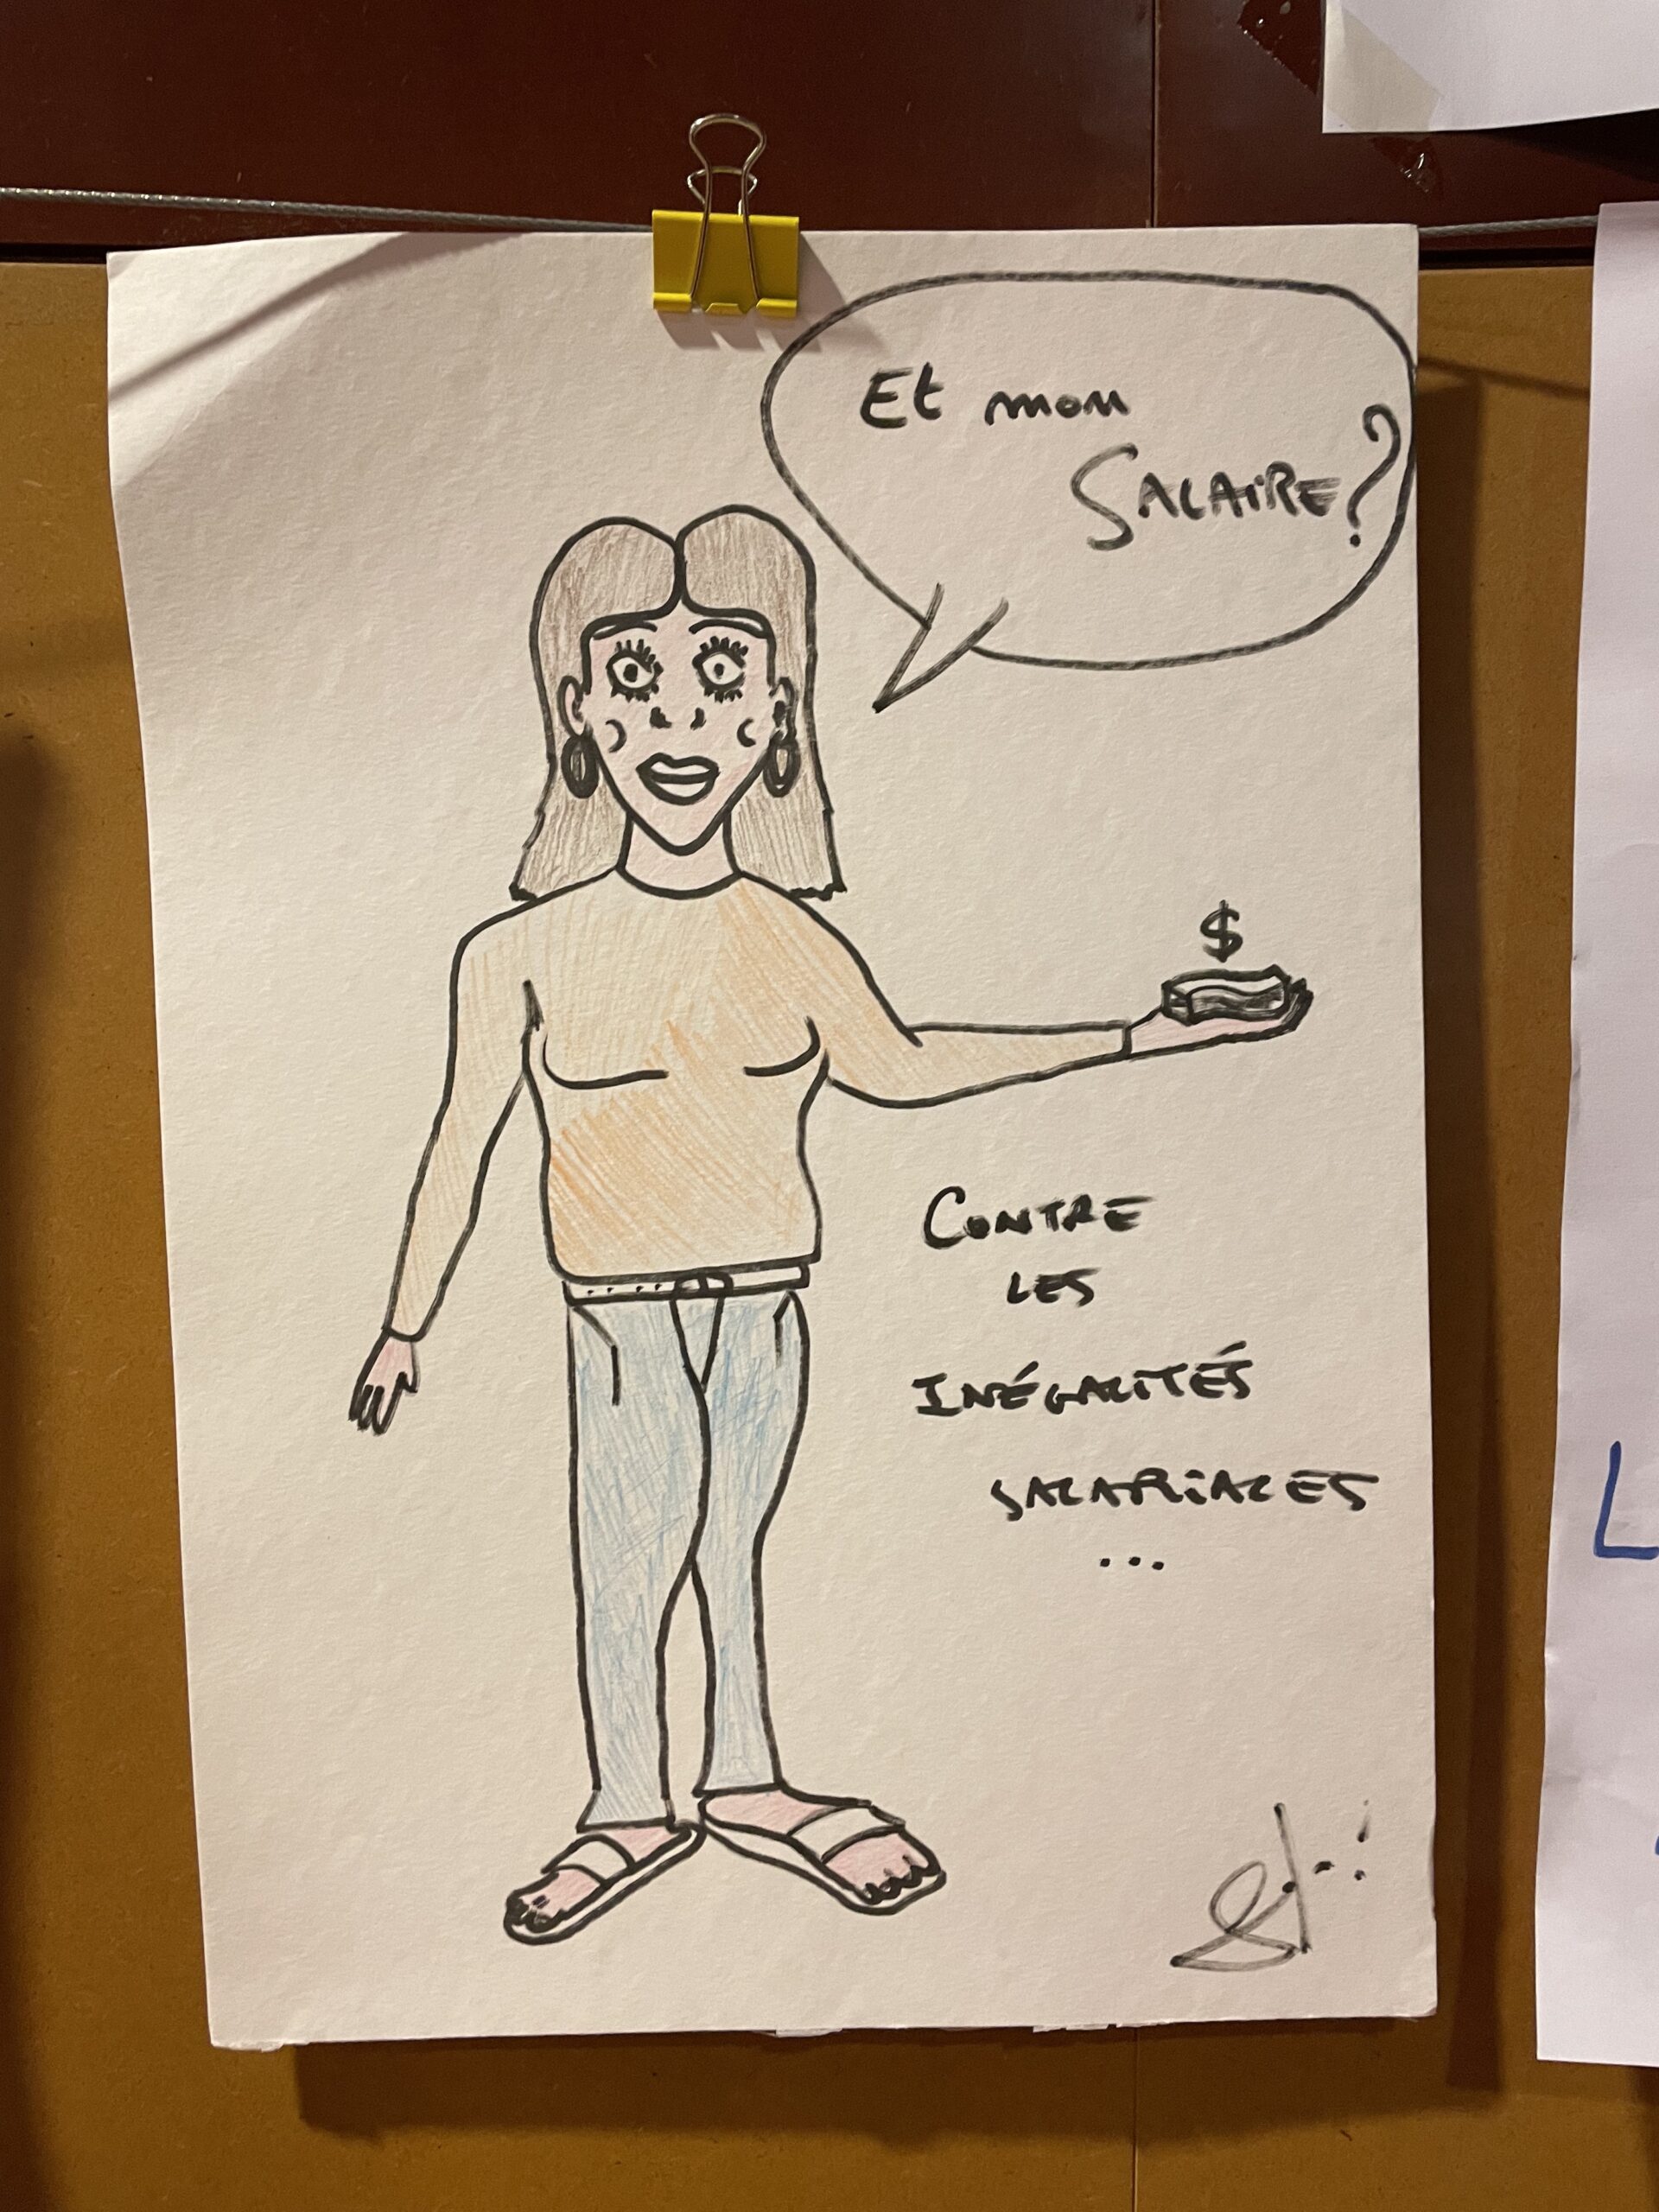 Et mon
SALAIRE?
$
CONTRE
LES
INÉGALITÉS
SALARIALES
...
L